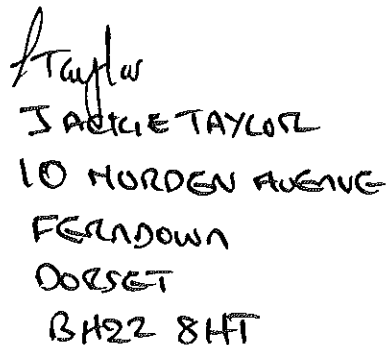 JTaylor
JACKIE TAYLOR
10 MORDEN AVENUE
FERNDOWN
DORSET
BH22 8HT